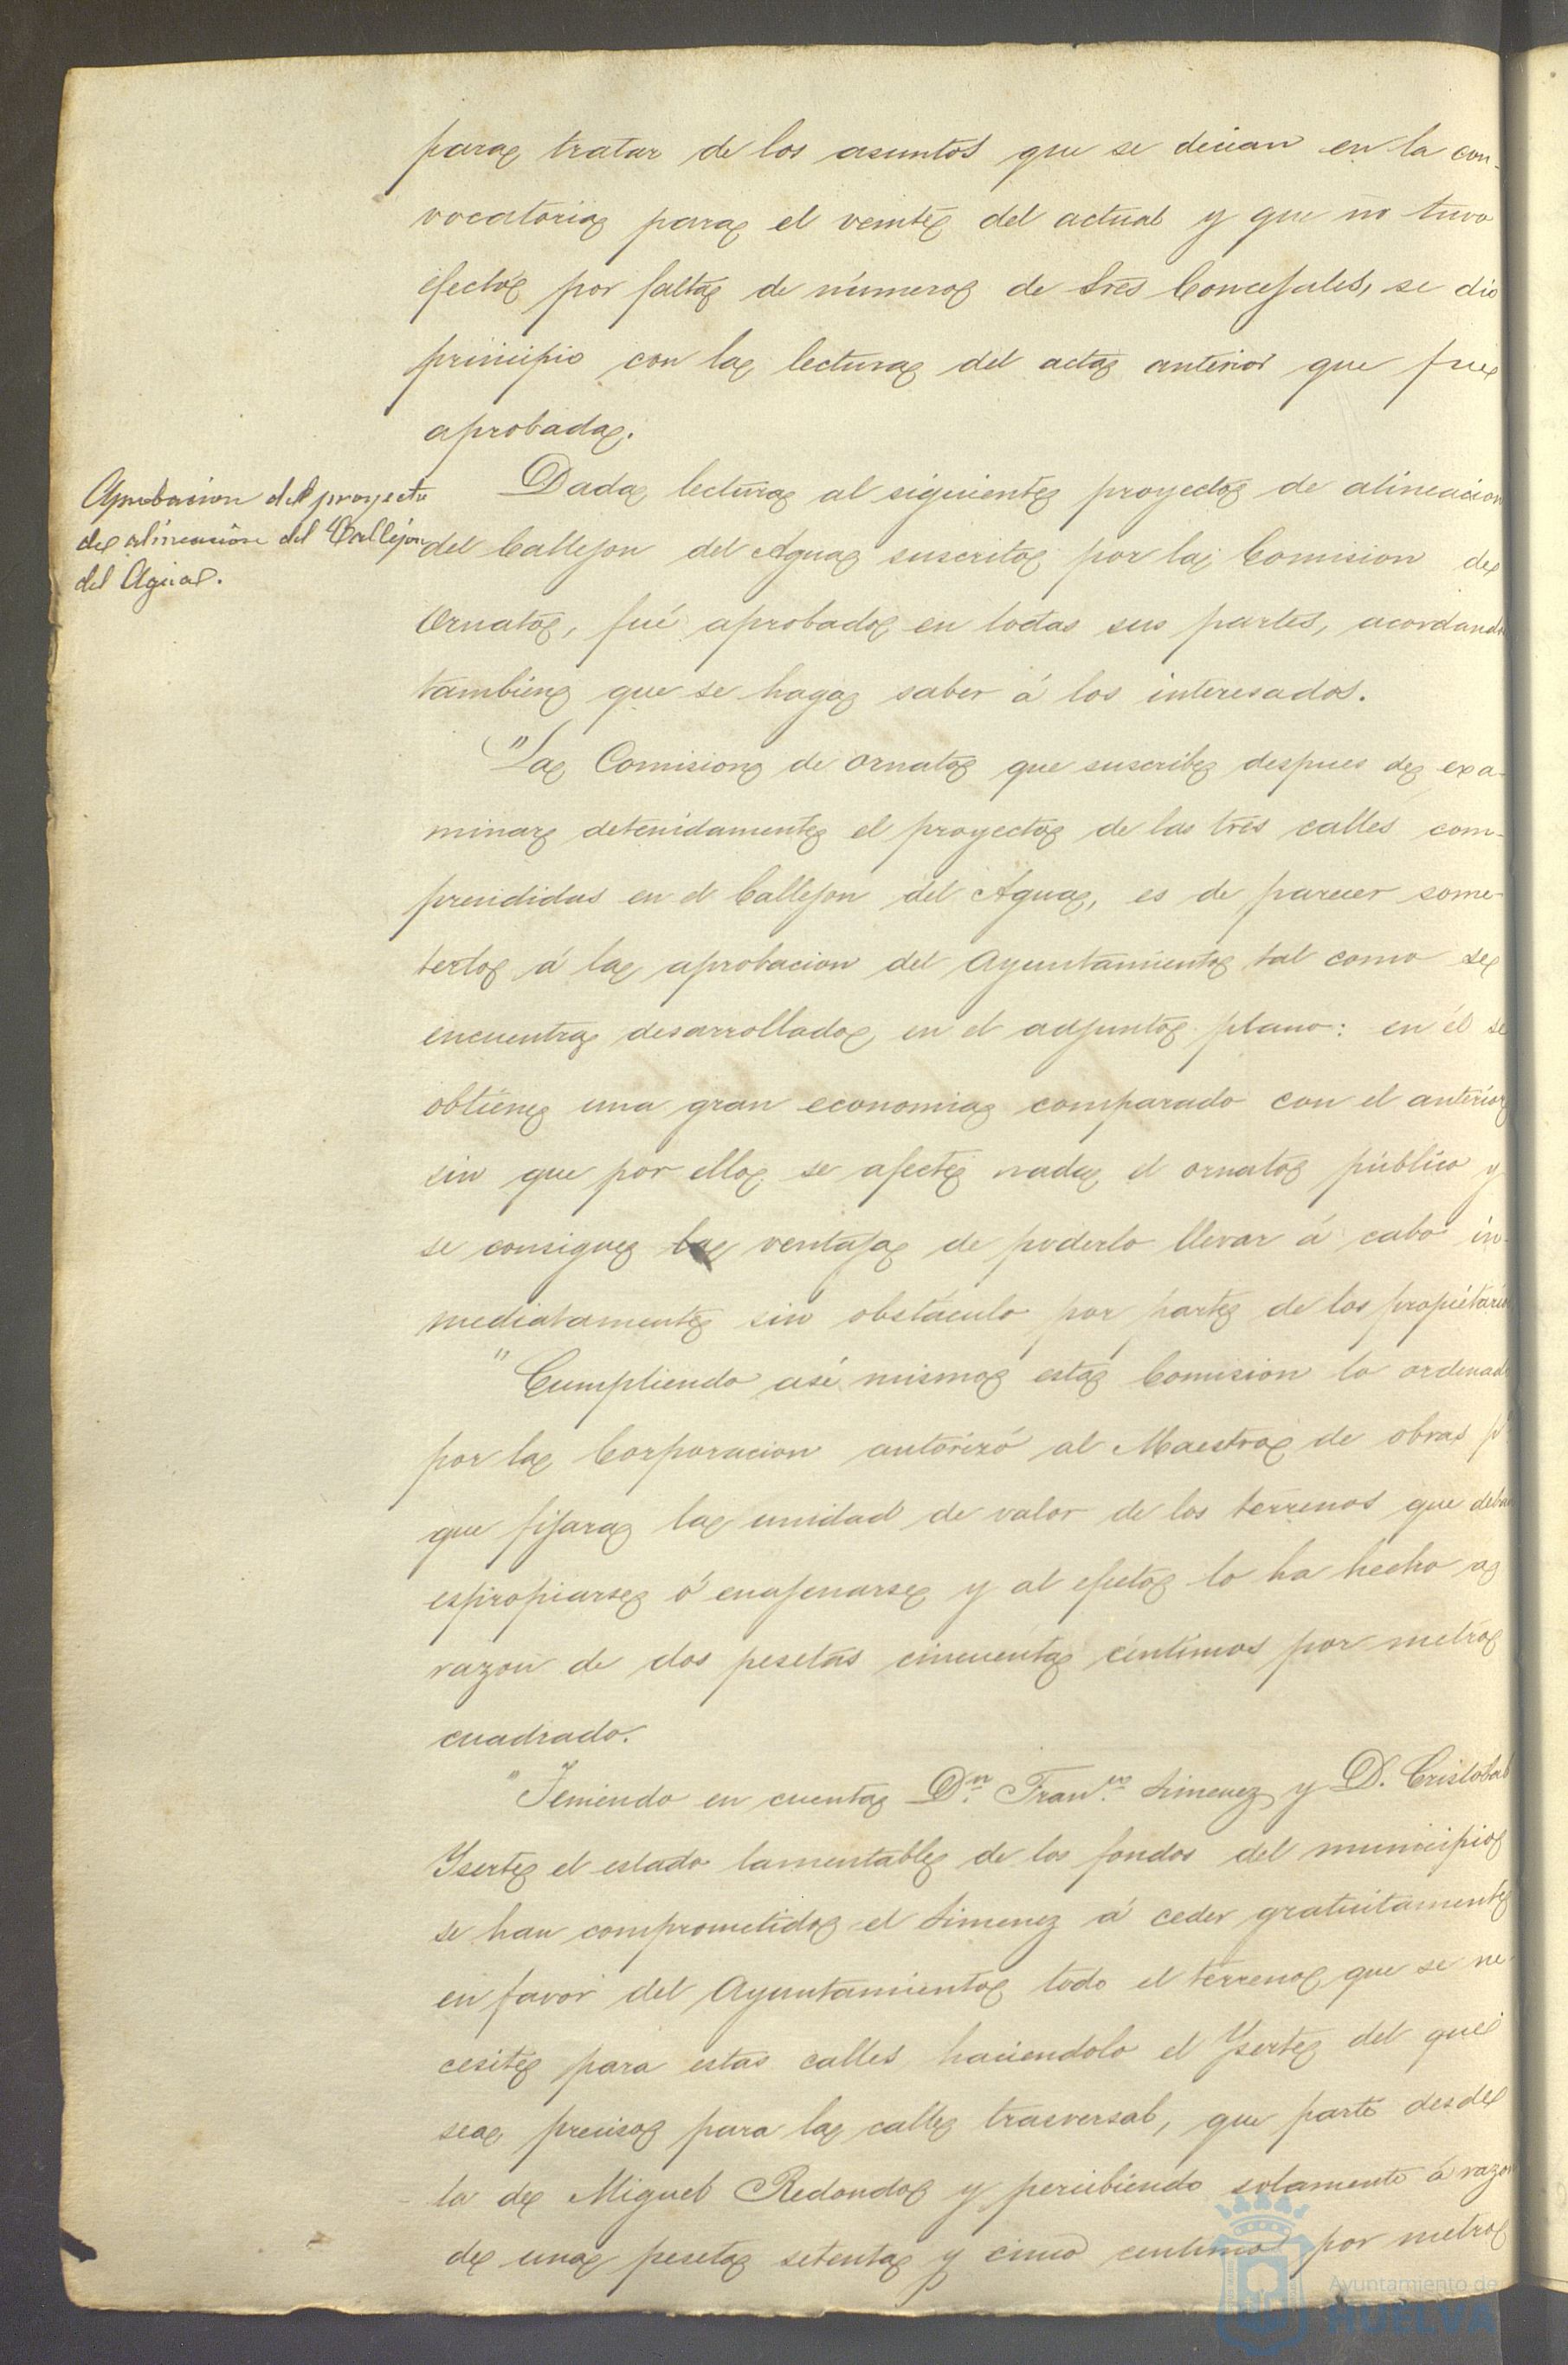 para tratar de los asuntos que se decian en la con-
vocatoria para el veinte del actual y que no tuvo
efectó por falta de número de tres Concejales, se dió
principio con la lectura del acta anterior que fue
aprobada.
Aprobacion del proyecto
de alineacion del Callejon
del Agua.
Dada lectura al siguiente proyecto de alineacion
del Callejon del Agua suscrito por la Comision de
Ornato, fué aprobado en todas sus partes, acordando
tambien que se haga saber á los interesados.
"La Comision de ornato que suscribe despues de exa-
minar detenidamente el proyecto de las tres calles com-
prendidas en el Callejon del Agua, es de parecer some-
terlo á la aprobacion del Ayuntamiento tal como se
encuentra desarrollado en el adjunto plano: en él se
obtiene una gran economia comparado con el anterior
sin que por ello se afecte nada el ornato público y
se consigue la ventaja de poderlo llevar á cabo in-
mediatamente sin obstaculo por parte de los propietarios
"Cumpliendo asi mismo esta Comision lo ordenado
por la Corporacion autorizó al Maestro de obras pª
que fijara la unidad de valor de los terrenos que deban
espropiarse ó enajenarse y al efecto lo ha hecho a
razon de dos pesetas cincuenta céntimos por metro
cuadrado.
"Teniendo en cuenta Dn. Franco. Limenez y D. Cristobal
Yserte el estado lamentable de los fondos del municipio
se han comprometido el Limenez á ceder gratuitamente
en favor del Ayuntamiento todo el terreno que se ne-
cesite para estas calles haciendolo el Yserte del que
sea preciso para la calle trasversal, que parte desde
la de Miguel Redondo y percibiendo solamente á razon
de una peseta setenta y cinco centimos por metro
Ayuntamiento de
HUELVA